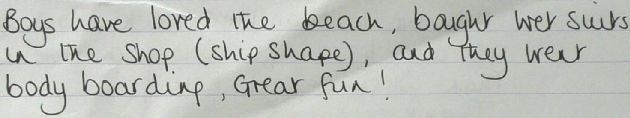 Boys have loved the beach, bought wet suits
in the shop (ship shape), and they went
body boarding, Great fun!